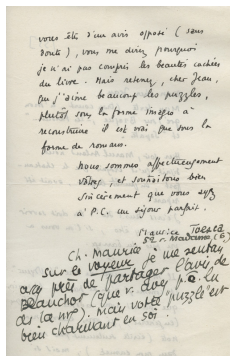 vous êtes d'un avis opposé (sans
doute), vous me direz pourquoi
je n'ai pas compris les beautés cachées
du livre. Mais retenez, cher Jean,
que j'aime beaucoup les puzzles,
plutôt sous la forme images à
reconstruire il est vrai que sous la
forme de romans.
Nous sommes affectueusement
vôtres, et souhaitons bien
sincèrement que vous ayez
à P.C. un séjour parfait.
Maurice Toesca
Ch. Maurice je me sentais
sur le voyeur
assez près de partager l'avis de
Blanchot (que v. avez p.ê. lu
ds la nrf). Mais votre "puzzle" est
bien charmant en soi.